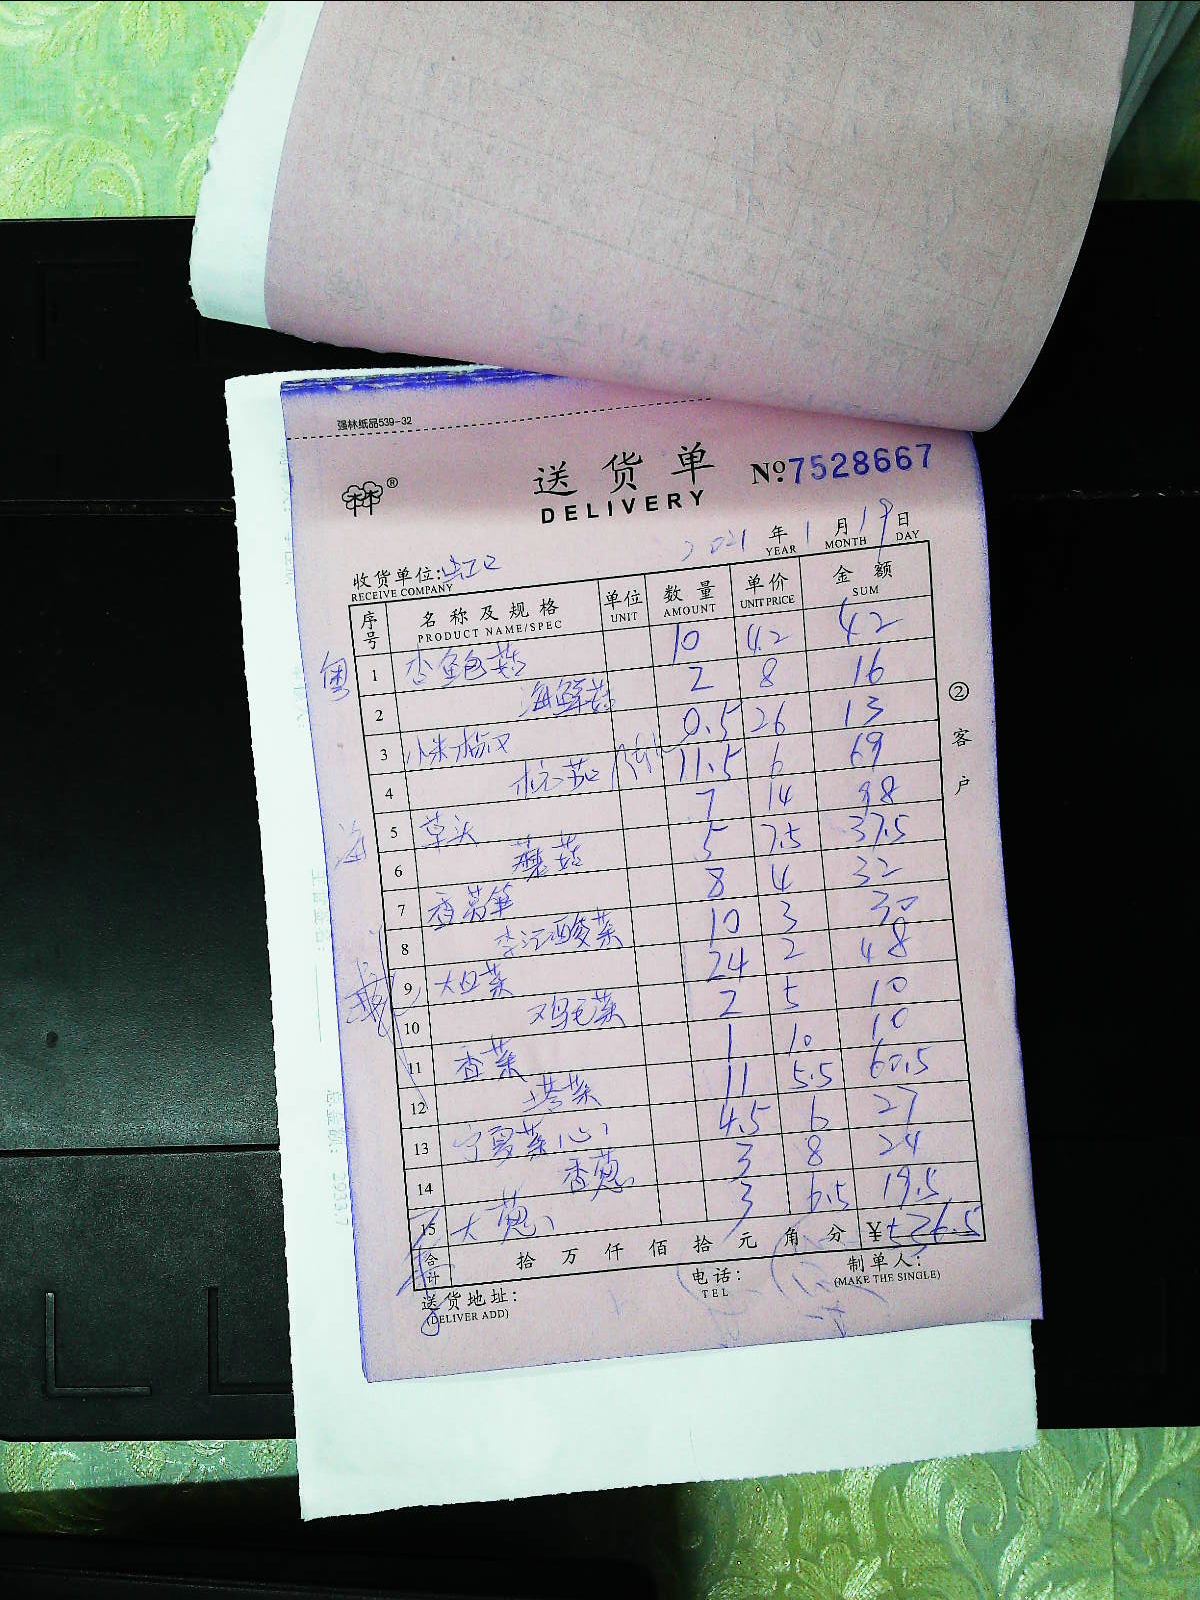 强林纸品539-32
®
送货单
DELIVERY
No 7528667
2021 年 1 月 19 日
YEAR MONTH DAY
收货单位:
RECEIVE COMPANY
序号 名称及规格 单位 数量 单价 金额
PRODUCT NAME/SPEC UNIT AMOUNT UNIT PRICE SUM
1 杏鲍菇 10 4.2 42
2 海鲜菇 2 8 16
3 小米椒 0.5 26 13
4 11.5 6 69
5 草头 7 14 98
6 蘑菇 5 7.5 37.5
7 香莴笋 8 4 32
8 酸菜 10 3 30
9 大白菜 24 2 48
10 鸡毛菜 2 5 10
11 香菜 1 10 10
12 塔菜 11 5.5 60.5
13 宁夏菜心 4.5 6 27
14 香葱 3 8 24
15 大葱 3 6.5 19.5
合计 拾 万 仟 佰 拾 元 角 分 ¥536.5
送货地址:
(DELIVER ADD)
电话:
TEL
制单人:
(MAKE THE SINGLE)
②客户
粤
海